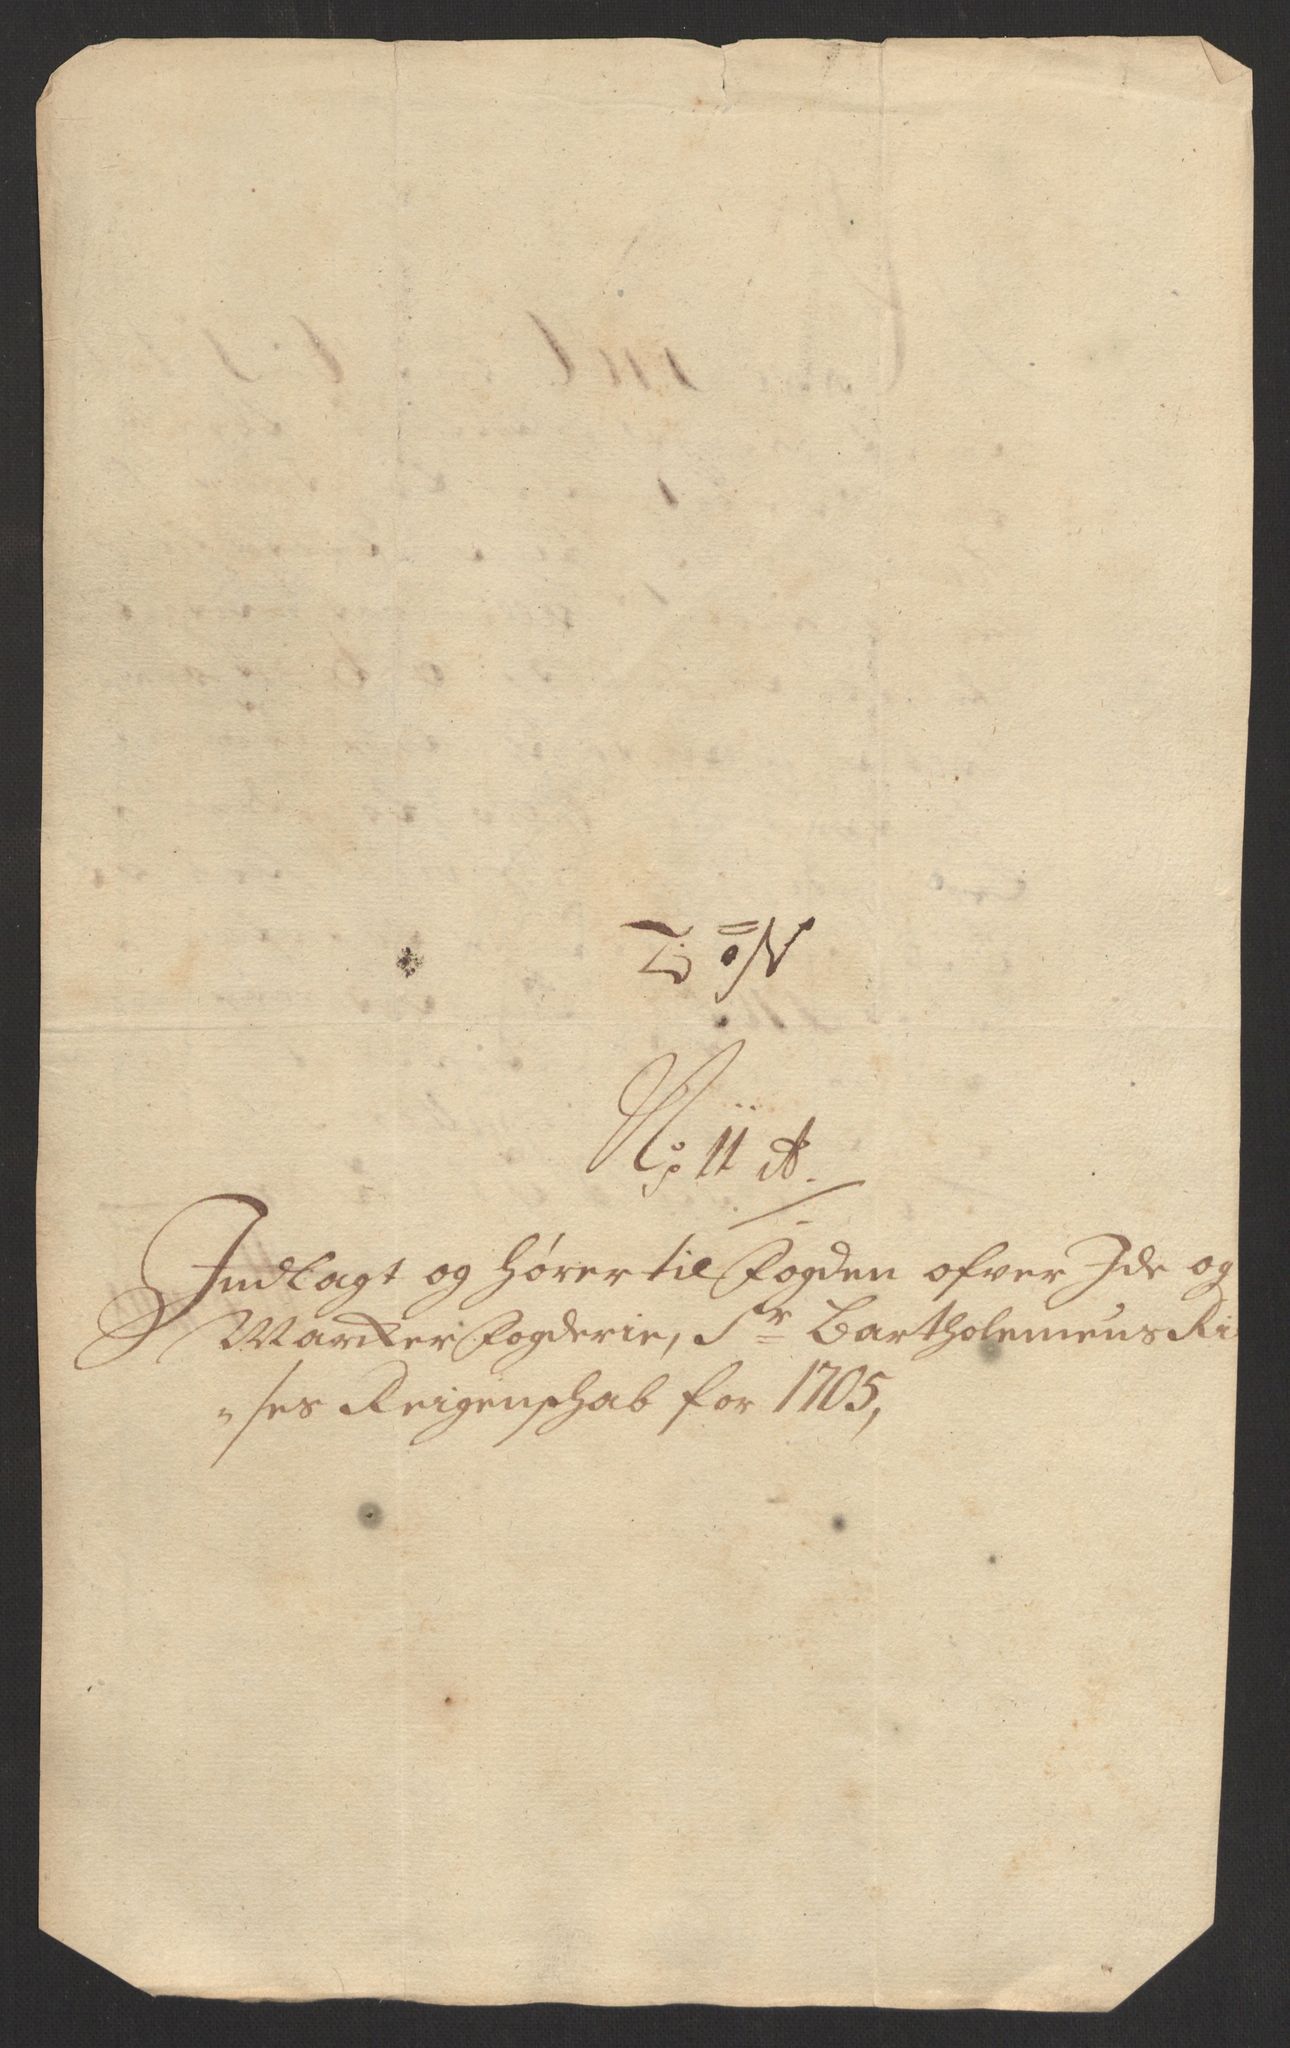 No 7
No: 11 A.
Indlagt og hører til Fogden ofver Ide og
Marcker Fogderie, Sr Bartholemeus Ri
"ses Reigenschab for 1705,